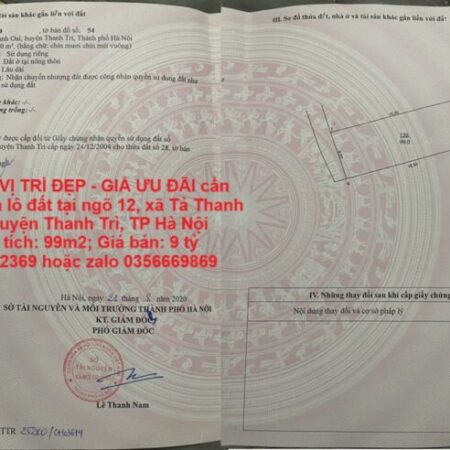 tài sản khác gắn liền với đất
, tờ bản đồ số: 54
Oai, huyện Thanh Trì, Thành phố Hà Nội
m², (bằng chữ: chín mươi chín mét vuông)
Sử dụng riêng
Đất ở tại nông thôn
Lâu dài
Nhận chuyển nhượng đất được công nhận quyền sử dụng đất như
sử dụng đất
khác: -/-.
trồng: -/-.
được cấp đổi từ Giấy chứng nhận quyền sử dụng đất số
huyện Thanh Trì cấp ngày 24/12/2004 cho thửa đất số 28, tờ bản
VỊ TRÍ ĐẸP - GIÁ ƯU ĐÃI cần
lô đất tại ngõ 12, xã Tả Thanh
uyện Thanh Trì, TP Hà Nội
tích: 99m2; Giá bán: 9 tỷ
2369 hoặc zalo 0356669869
Hà Nội, ngày 21 tháng 8 năm 2020
SỞ TÀI NGUYÊN VÀ MÔI TRƯỜNG THÀNH PHỐ HÀ NỘI
KT. GIÁM ĐỐC
PHÓ GIÁM ĐỐC
SỞ
TÀI NGUYÊN
Lê Thanh Nam
III. Sơ đồ thửa đất, nhà ở và tài sản khác gắn liền với đất
99.0
IV. Những thay đổi sau khi cấp giấy chứng
Nội dung thay đổi và cơ sở pháp lý